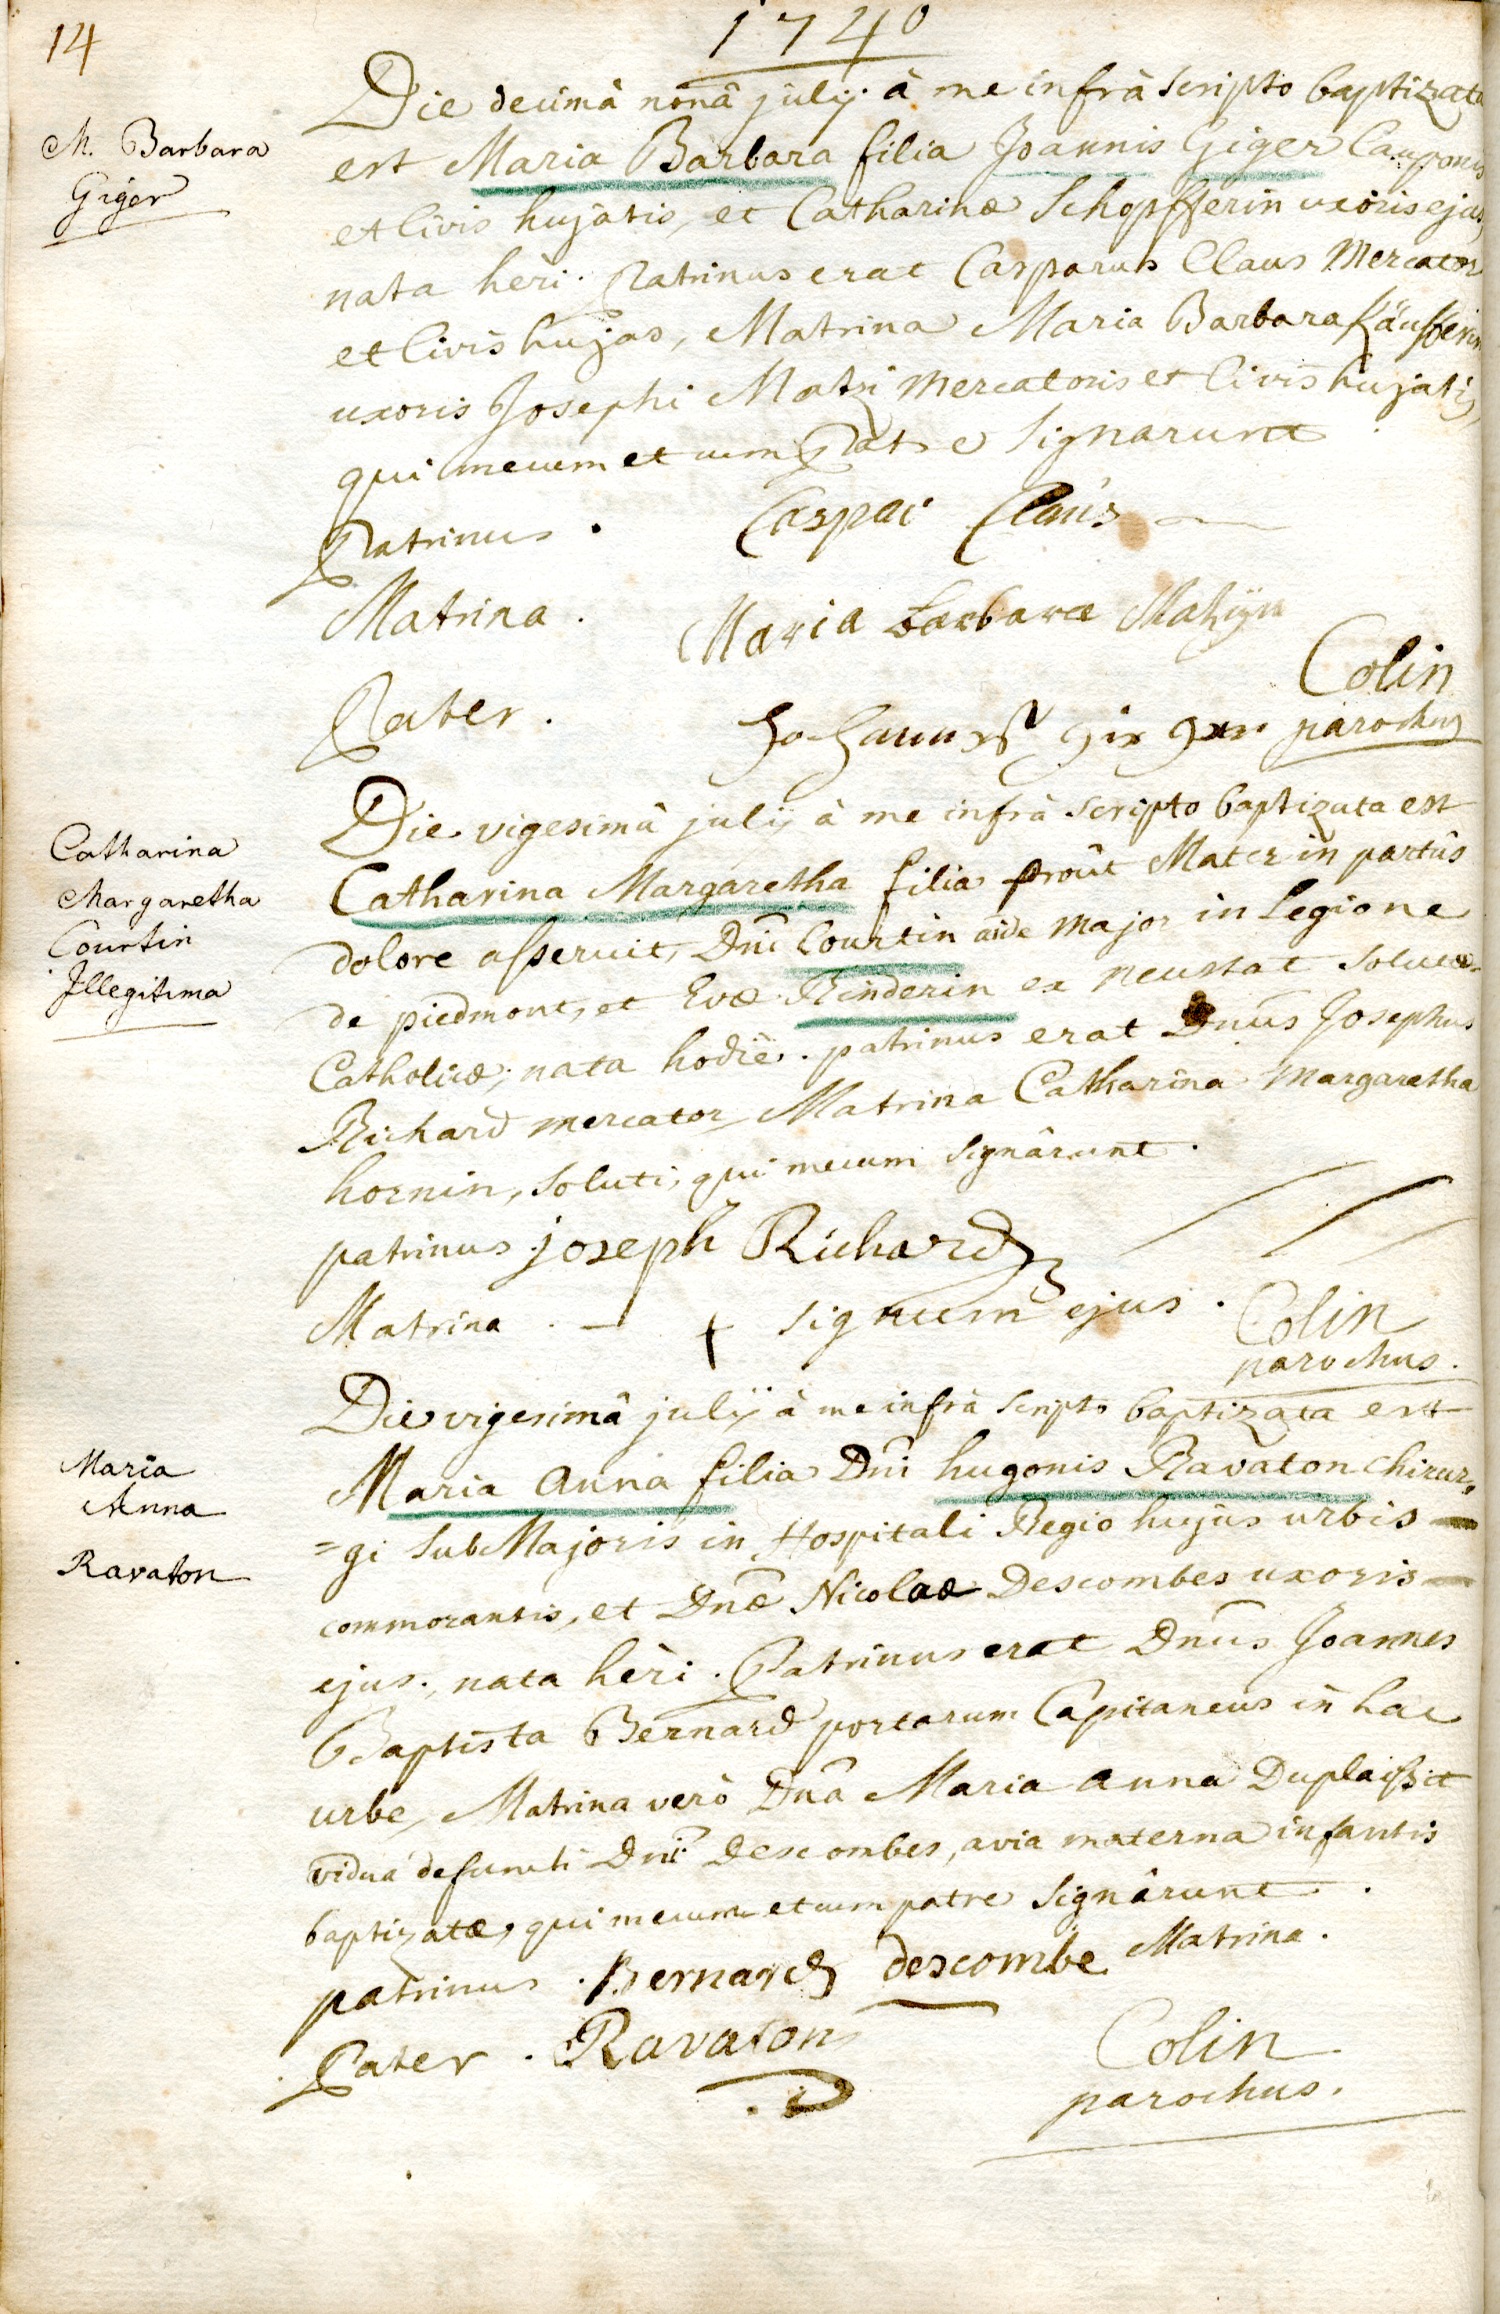 14
1740
M. Barbara
Giger
Die decimâ nonâ julij à me infrà scripto baptizata
est Maria Barbara filia Joannis Giger Cauponis
et Civis hujatis, et Catharinæ Schopfferin uxoris ejus,
nata heri. Patrinus erat Casparus Claus Mercator
et Civis hujas, Matrina Maria Barbara
uxoris Josephi Matzi Mercatoris et Civis hujatis,
qui mecum et cum Patre Signarunt
Patrinus. Caspar Claus
Matrina. Maria barbara Matzijn
Colin
Pater. Johannes gix gxr parochus
Catharina
Margaretha
Courtin
Illegitima
Die vigesimâ julij à me infrà scripto baptizata est
Catharina Margaretha filia proût Mater in partûs
dolore asseruit, Dni Courtin aide Major in Legione
de piedmont, et Evæ Rinderin ex Neustat solutæ
Catholicæ, nata hodiè. patrinus erat Dnus Josephus
Richard mercator Matrina Catharina Margaretha
hornin, soluti, qui mecum signârunt.
patrinus joseph Richard
Matrina. — + signum ejus. Colin
parochus.
Maria
Anna
Ravaton
Die vigesimâ julij à me infrà scripto baptizata est
Maria Anna filia Dni hugonis Ravaton Chirur„
=gi SubMajoris in Hospitali Regio hujus urbis
commorantis, et Dnæ Nicolaæ Descombes uxoris
ejus., nata hèri. Patrinus erat Dnus Joannes
Baptista Bernard portarum Capitaneus in hac
urbe, Matrina verò Dna Maria Anna Duplaissit
vidua defuncti Dni Descombes, avia materna infantis
baptizatæ, qui mecum et cum patre signârunt.
patrinus. Bernard descombe Matrina.
Pater. Ravaton Colin
parochus.